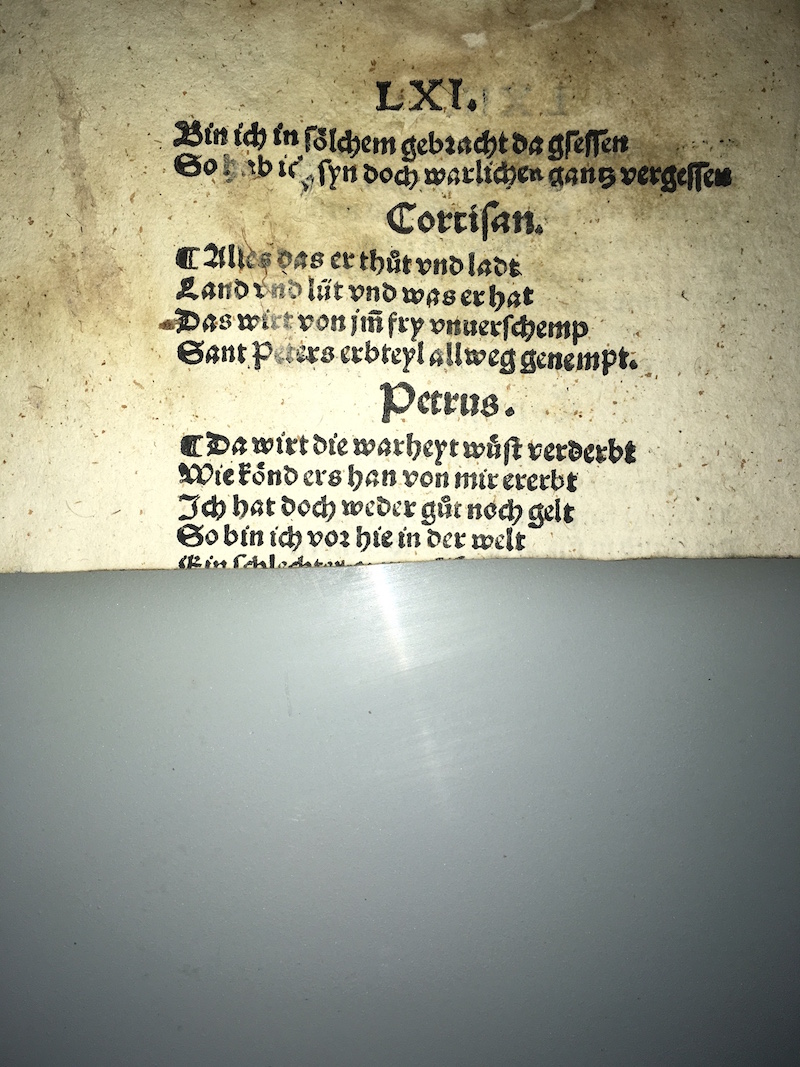 LXI.
Bin ich in sölchem gebracht da gsessen
So hab ich syn doch warlichen gantz vergessen
Cortisan.
¶ Alles das er thůt vnd ladt
Land vnd lüt vnd was er hat
Das wirt von jm̄ fry vnuerschemp
Sant Peters erbteyl allweg genempt.
Petrus.
¶ Da wirt die warheyt wůst verderbt
Wie könd ers han von mir ererbt
Ich hat doch weder gůt noch gelt
So bin ich vor hie in der welt
Ein schlechter